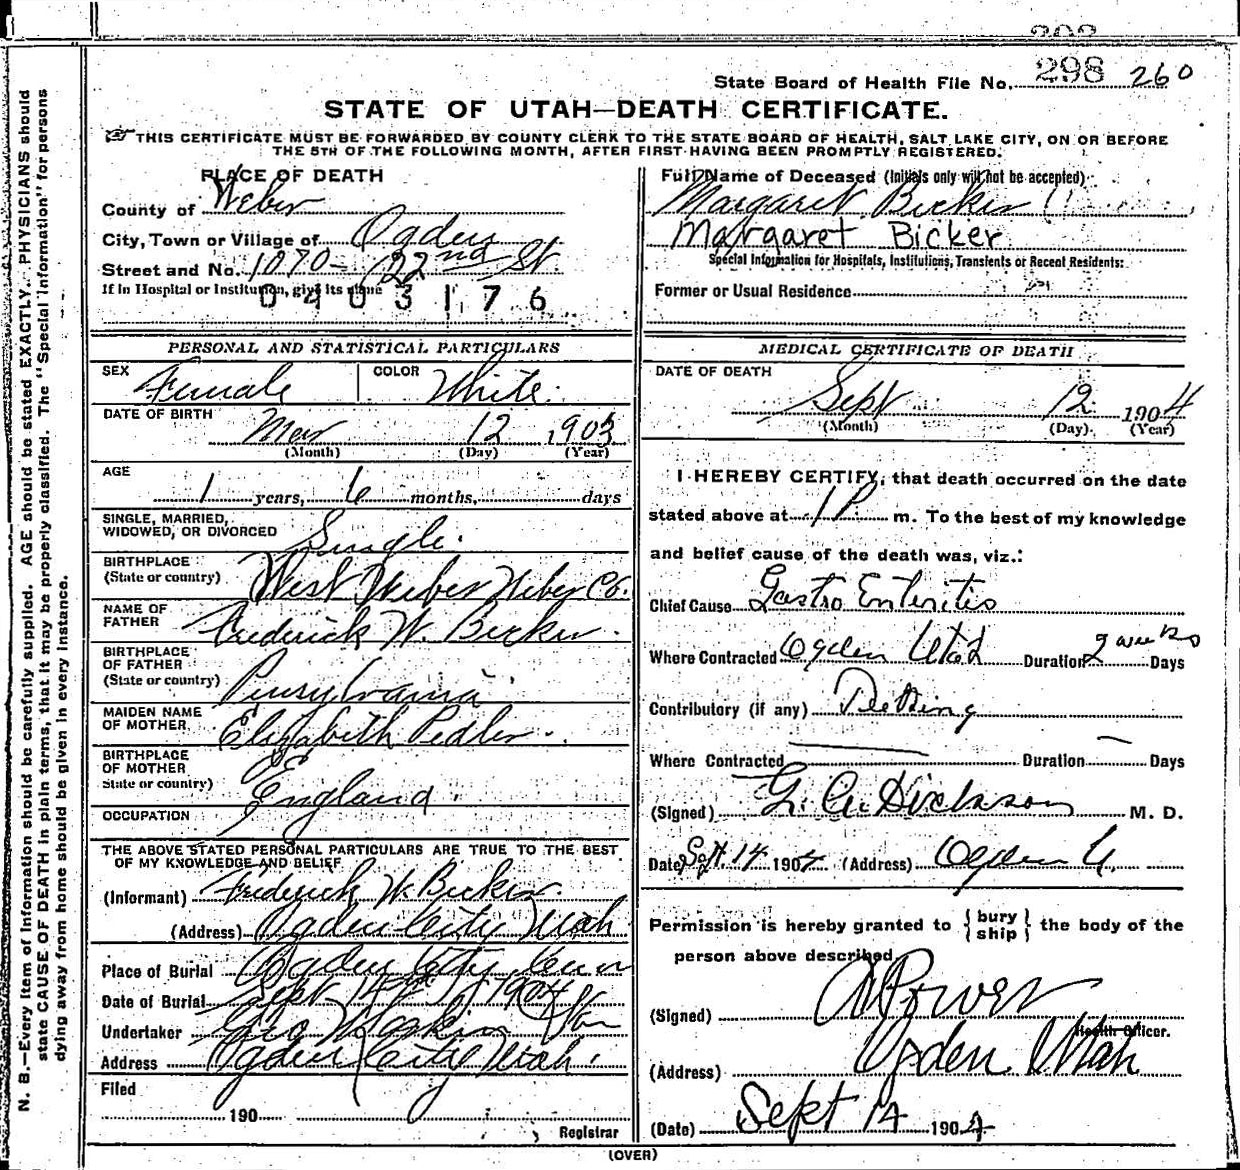 298 260
State Board of Health File No.
STATE OF UTAH—DEATH CERTIFICATE.
THIS CERTIFICATE MUST BE FORWARDED BY COUNTY CLERK TO THE STATE BOARD OF HEALTH, SALT LAKE CITY, ON OR BEFORE
THE 5TH OF THE FOLLOWING MONTH, AFTER FIRST HAVING BEEN PROMPTLY REGISTERED.
PLACE OF DEATH
County of Weber
City, Town or Village of Ogden
Street and No. 1070- 22nd St
If in Hospital or Institution, give its name
0403176
Full Name of Deceased (Initials only will not be accepted)
Margaret Bicker
Margaret Bicker
Special Information for Hospitals, Institutions, Transients or Recent Residents:
Former or Usual Residence
PERSONAL AND STATISTICAL PARTICULARS
SEX Female COLOR White.
DATE OF BIRTH Mar 12 1903
(Month) (Day) (Year)
AGE
1 years, 6 months, days
SINGLE, MARRIED,
WIDOWED, OR DIVORCED Single.
BIRTHPLACE
(State or country) West Weber Weber Co.
NAME OF
FATHER Frederick W. Bicker.
BIRTHPLACE
OF FATHER
(State or country) Pensylvania
MAIDEN NAME
OF MOTHER Elizabeth Pedler.
BIRTHPLACE
OF MOTHER
State or country) England.
OCCUPATION
THE ABOVE STATED PERSONAL PARTICULARS ARE TRUE TO THE BEST
OF MY KNOWLEDGE AND BELIEF
(Informant) Frederick W. Bicker
(Address) Ogden City Utah
Place of Burial Ogden City Cem
Date of Burial Sept 14th 1904
Undertaker Geo
Address Ogden City Utah.
Filed
190
Registrar
MEDICAL CERTIFICATE OF DEATH
DATE OF DEATH
Sept 12 1904
(Month) (Day) (Year)
I HEREBY CERTIFY, that death occurred on the date
stated above at 1 P. m. To the best of my knowledge
and belief cause of the death was, viz.:
Chief Cause Gastro Enteritis
Where Contracted Ogden Utah Duration 2 weeks Days
Contributory (if any) Teething
Where Contracted Duration Days
(Signed) G. A. Dickson M. D.
Date Sept. 14 1904 (Address) Ogden U.
Permission is hereby granted to { bury ship } the body of the
person above described
(Signed) A Power
Health Officer.
(Address) Ogden Utah
(Date) Sept 14 1904
(OVER)
N. B.—Every item of information should be carefully supplied. AGE should be stated EXACTLY. PHYSICIANS should
state CAUSE OF DEATH in plain terms, that it may be properly classified. The "Special Information" for persons
dying away from home should be given in every instance.